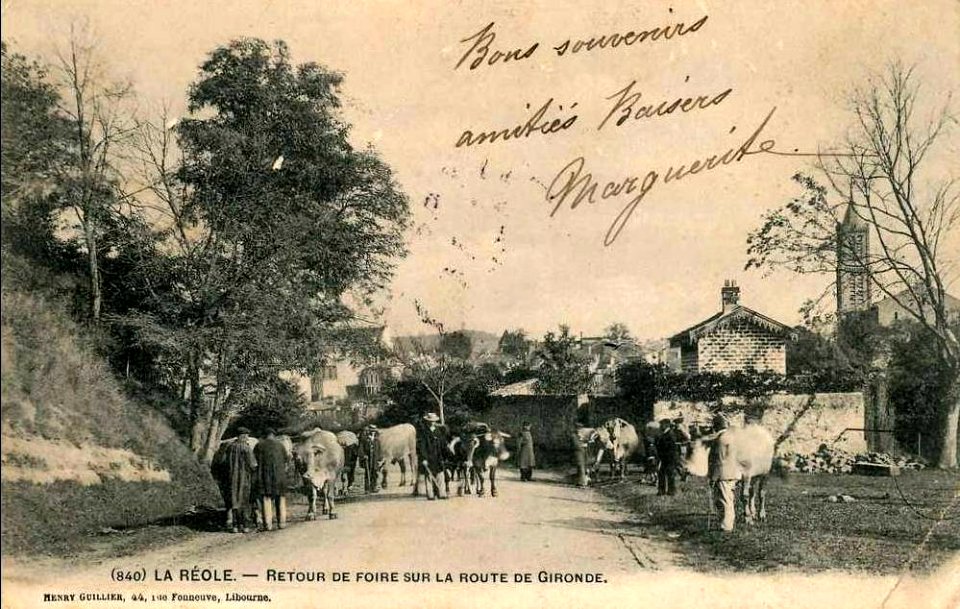 Bons souvenirs
amitiés Baisérs
Marguerite
(840) LA RÉOLE. — RETOUR DE FOIRE SUR LA ROUTE DE GIRONDE.
HENRY GUILLIER, 44, rue Fonneuve, Libourne.